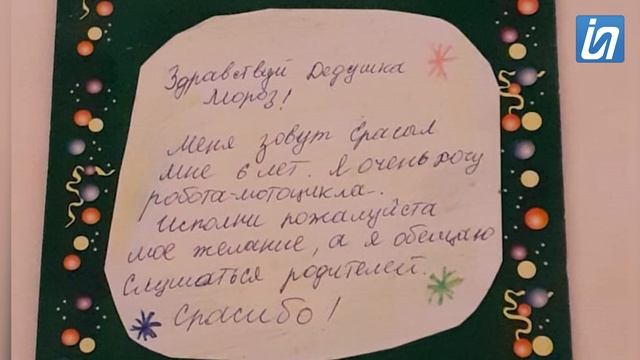 Здравствуй Дедушка
Мороз!
Меня зовут
мне 6 лет. Я очень хочу
робота-мотоцикла.
Исполни пожалуйста
мое желание, а я обещаю
слушаться родителей.
Спасибо!